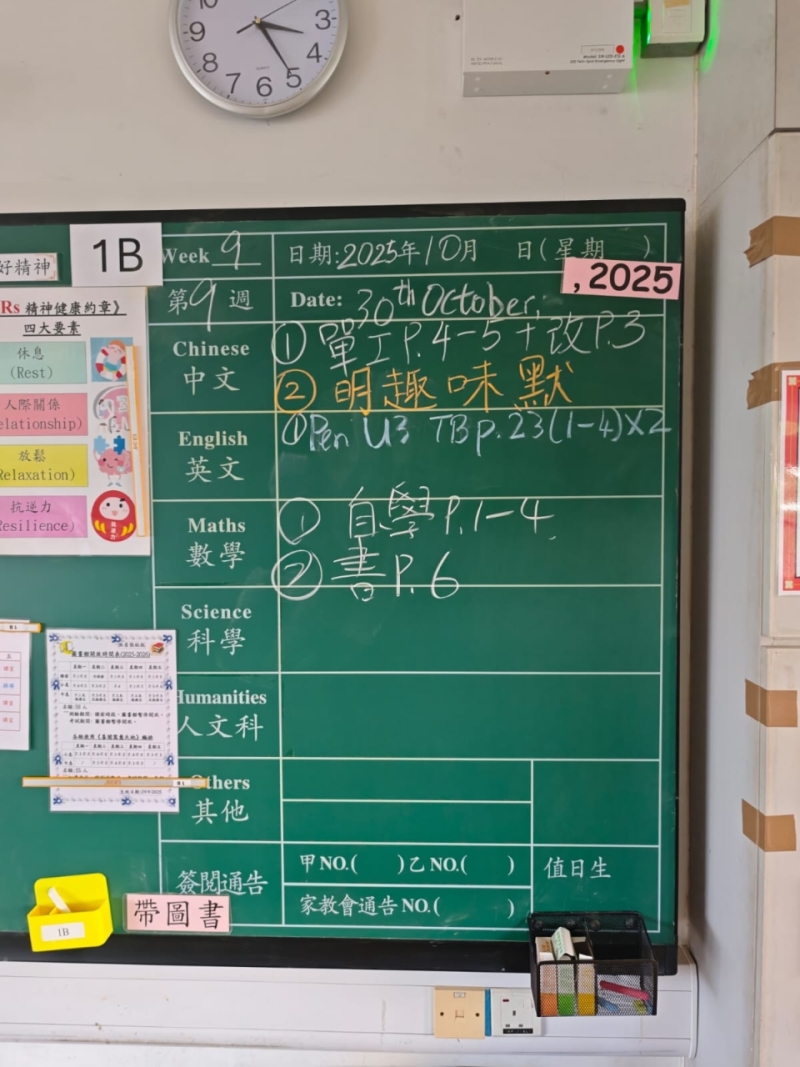 10
9
8
7
6
5
4
3
好精神
1B
Week 9
日期:2025年10月 日(星期 )
, 2025
第9週
Date: 30th October,
Rs 精神健康約章》
四大要素
休息
(Rest)
人際關係
elationship)
放鬆
Relaxation)
抗逆力
esilience)
Chinese
中文
① 單工 P.4-5 + 改 P.3
② 明趣味默
English
英文
① Pen U3 TB p.23(1-4)×2
Maths
數學
① 自學 P.1-4
② 書 P.6
Science
科學
Humanities
人文科
Others
其他
簽閱通告
甲 NO.( )乙 NO.( )
值日生
家教會通告 NO.( )
1B
帶圖書